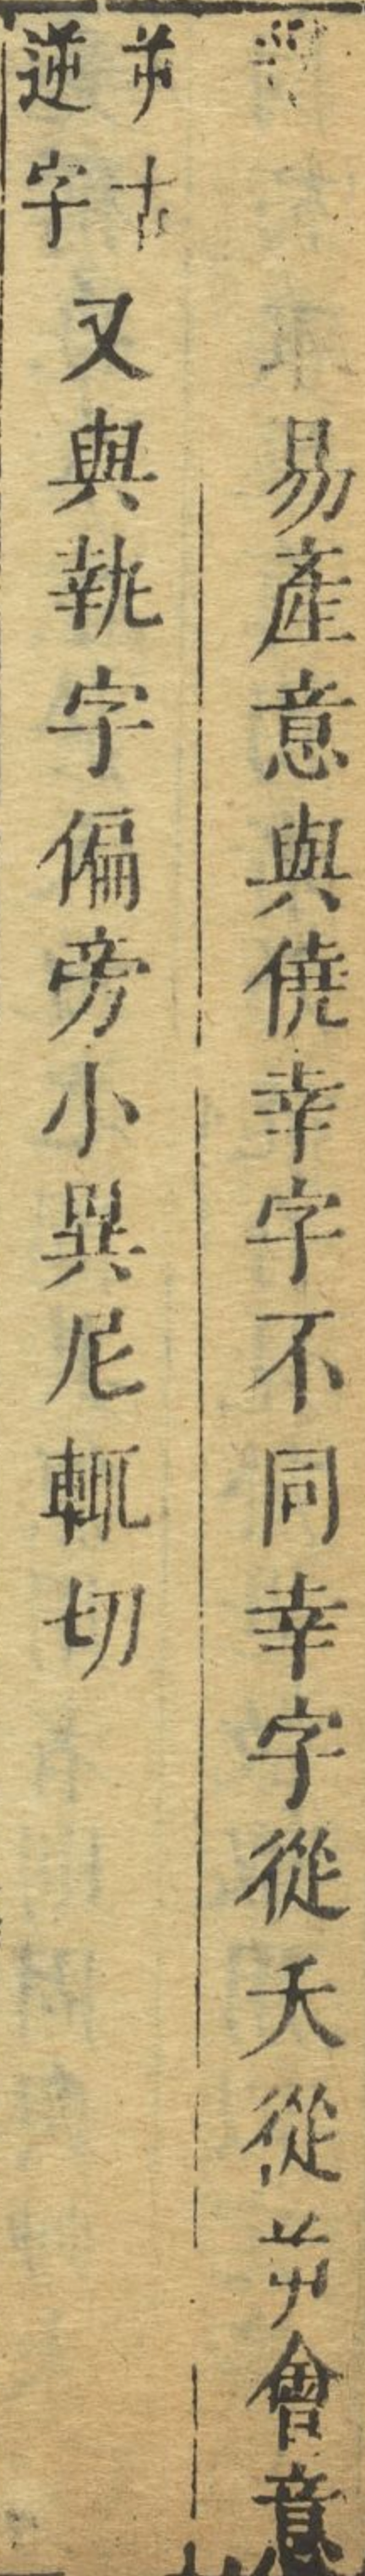 易產意與僥幸字不同幸字從夭從屰會意
屰古
逆字
又與執字偏旁小異尼輒切